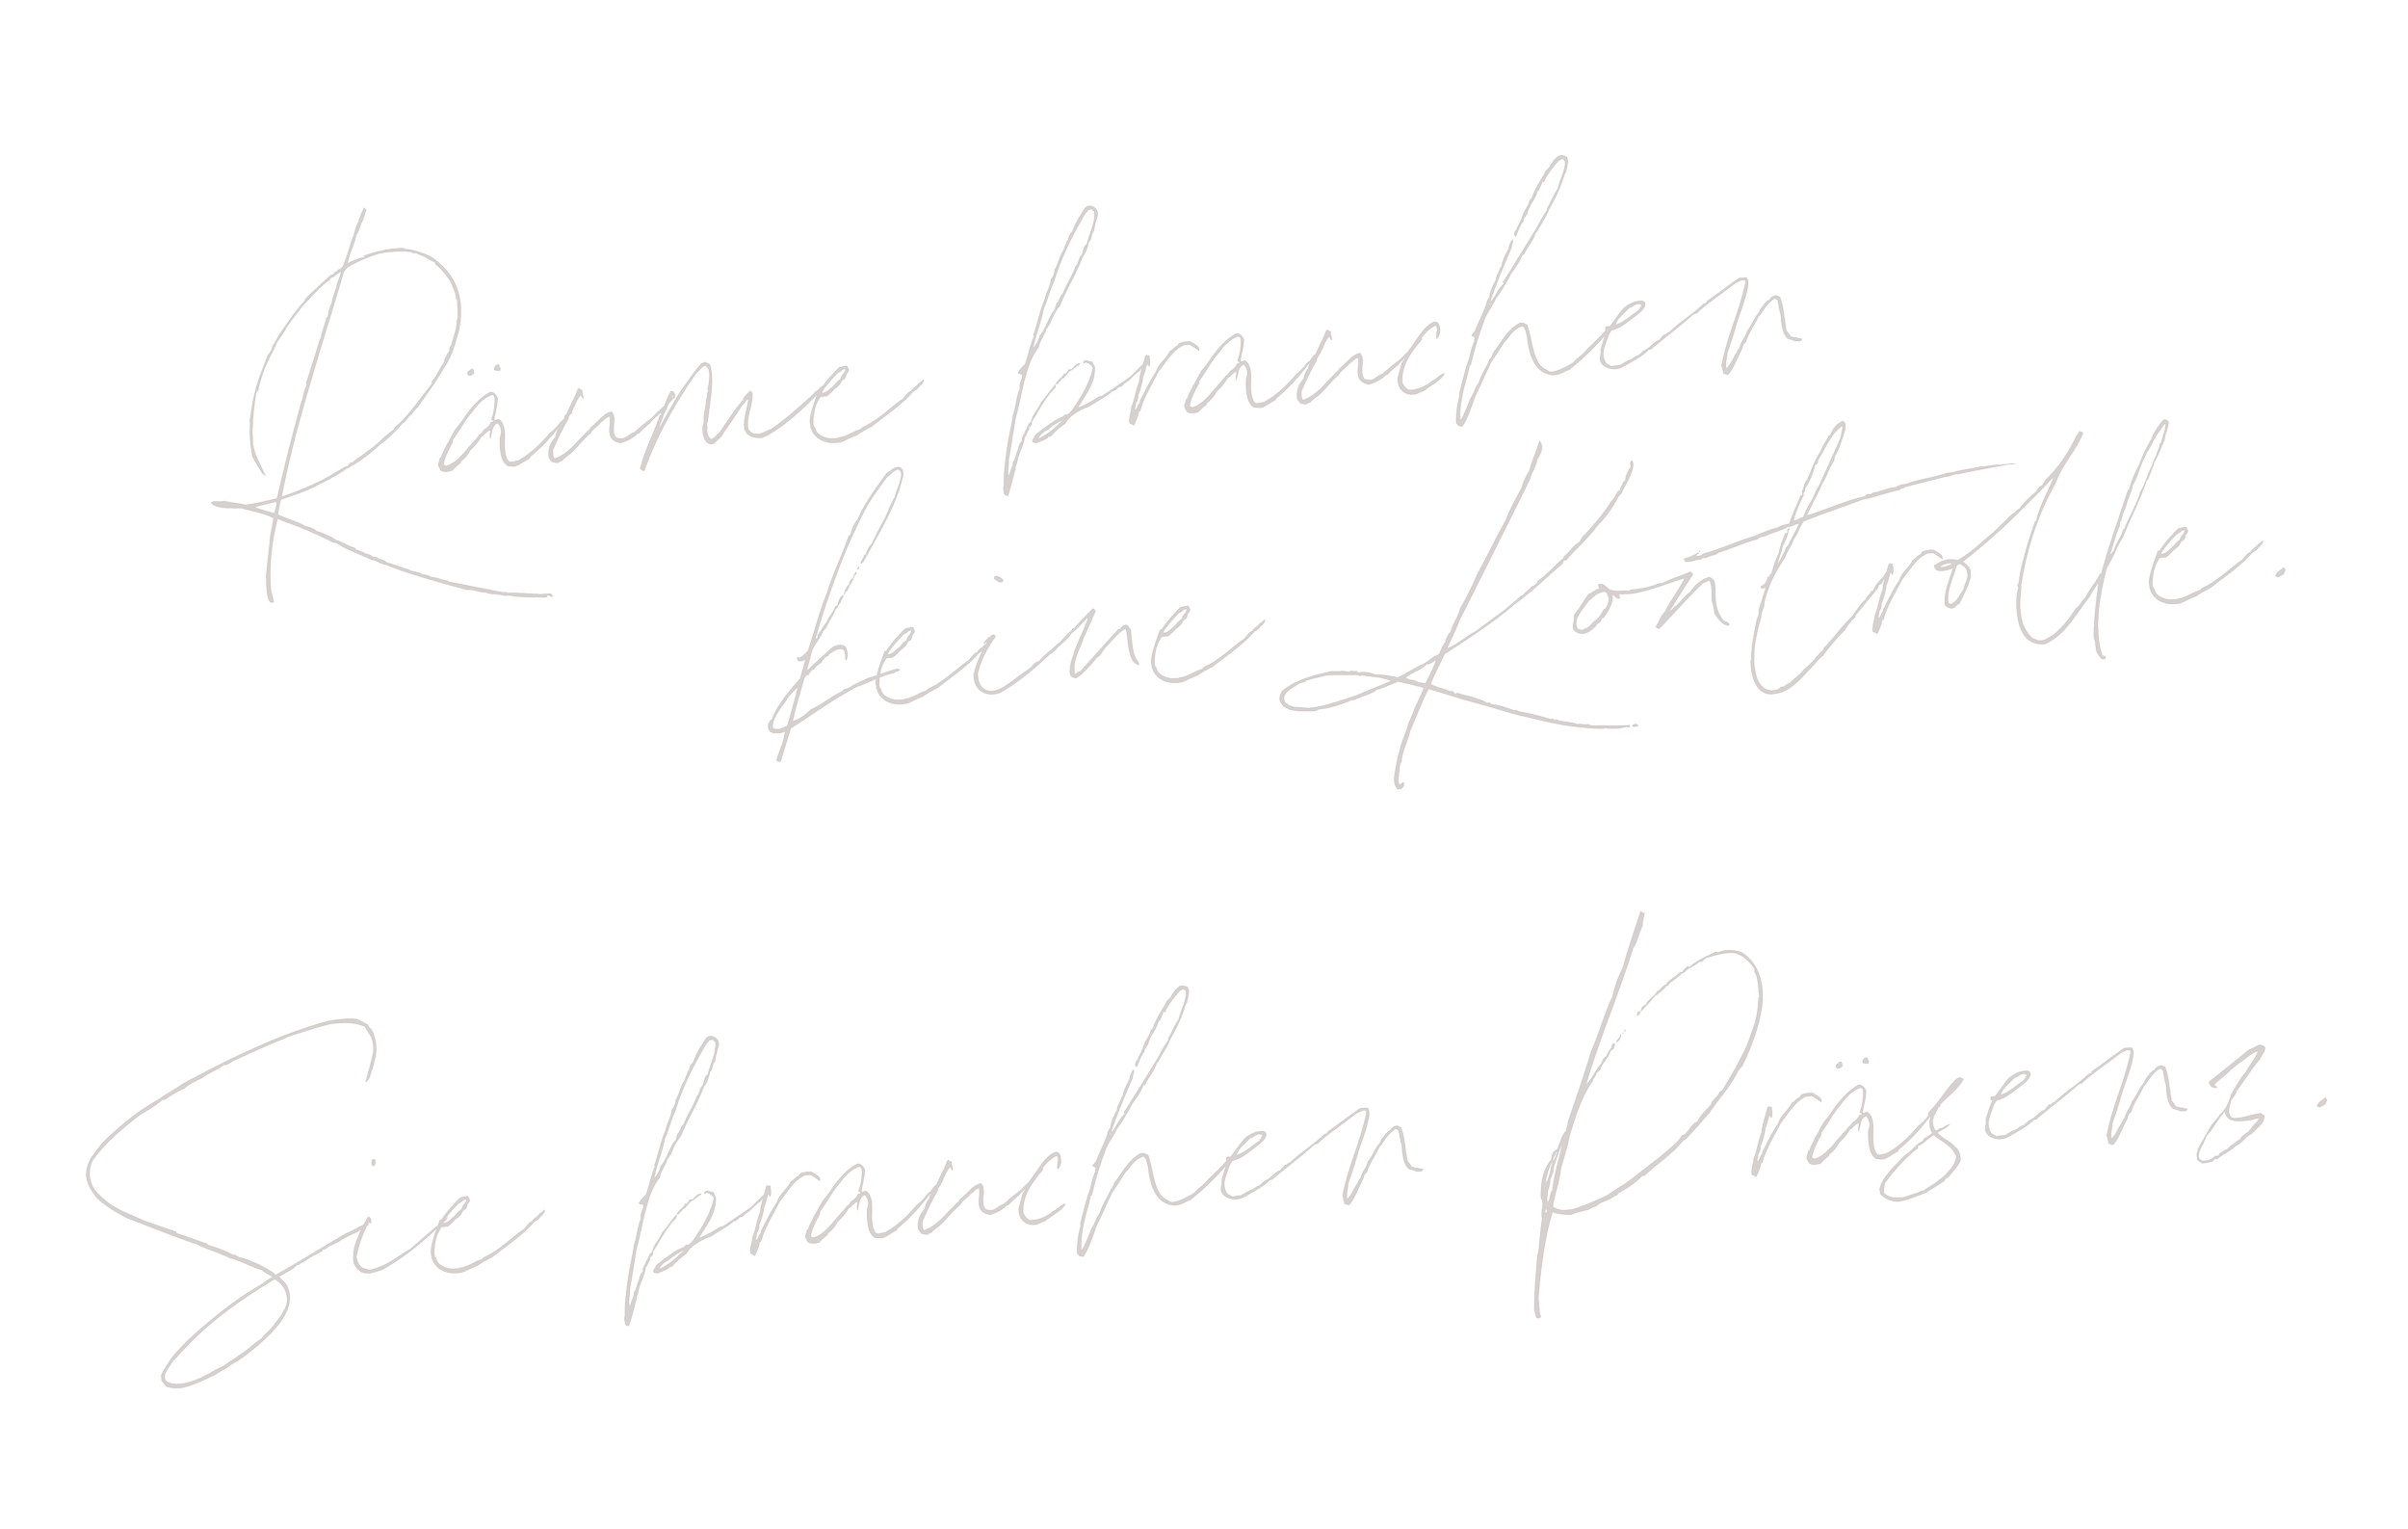 Räume brauchen
keine Kontrolle.
Sie brauchen Präsenz.